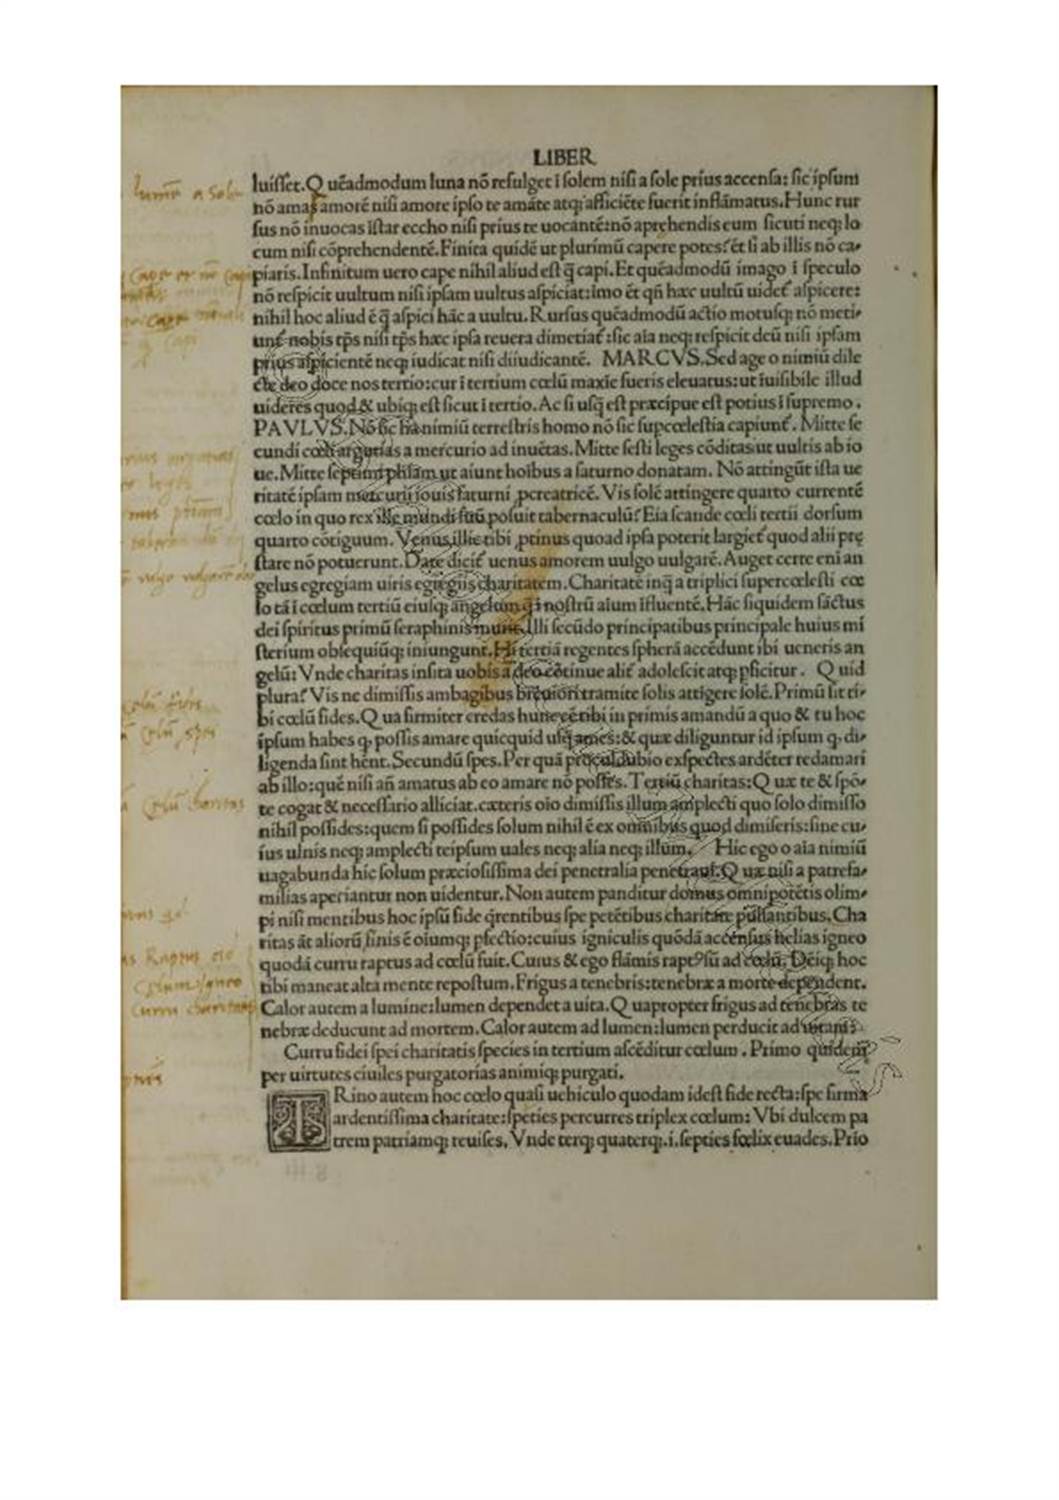 LIBER
luisset. Quēadmodum luna nō refulget ī solem nisi a sole prius accensa: sic ipsum
nō amas amorē nisi amore ipso te amāte atq; afficiēte fuerit inflāmatus. Hunc rur
sus nō inuocas īstar eccho nisi prius te uocantē: nō aprehendis eum sicuti neq; lo
cum nisi cōprehendentē. Finita quidē ut plurimū capere potes: ēt si ab illis nō ca-
piaris. Infinitum uero cape nihil aliud est q̄ capi. Et quēadmodū imago ī speculo
nō respicit uultum nisi ipsam uultus aspiciat: imo ēt qñ hæc uultū uidet̄ aspicere:
nihil hoc aliud ē q̄ aspici hāc a uultu. Rursus quēadmodū actio motusq; nō meti-
unt̄ nobis tp̄s nisi tp̄s hæc ipsa reuera dimetiat̄: sic aīa neq; respicit deū nisi ipsam
prius aspicientē neq; iudicat nisi diiudicantē. MARCVS. Sed age o nimiū dile
cte deo doce nos tertio: cur ī tertium cœlū maxīe fueris eleuatus: ut īuisibile illud
uideres quod & ubiq; est sicut ī tertio. Ac si usq̄ est præcipue est potius ī supremo.
PAVLVS. Nō sic hā nimiū terrestris homo nō sic supcœlestia capiunt̄. Mitte se
cundi cœli argutias a mercurio ad inuētas. Mitte sesti leges cōditas ut uultis ab io
ue. Mitte septimi phīam ut aiunt hoībus a saturno donatam. Nō attingūt ista ue
ritatē ipsam mercurii iouis saturni ꝓcreatricē. Vis solē attingere quarto currentē
cœlo in quo rex ille mundi suū posuit tabernaculū? Eia scande cœli tertii dorsum
quarto cōtiguum. Venus illic tibi ꝓtinus quoad ipsa poterit largiet̄ quod alii prę
stare nō potuerunt. Dare dicit̄ uenus amorem uulgo uulgarē. Auget certe eni an
gelus egregiam uiris egregiis charitatem. Charitatē inq̄ a triplici supercœlesti cœ
lo tā ī cœlum tertiū eiusq; angelum q̄ ī nostrū aīum īfluentē. Hāc siquidem sāctus
dei spiritus primū seraphinis Illi secūdo principatibus principale huius mi
sterium obsequiūq; iniungunt. Hi tertiā regentes spherā accēdunt ibi ueneris an
gelū: Vnde charitas insita uobis a deo cōtinue alit̄ adolescit atq; pficitur. Quid
plura? Vis ne dimissis ambagibus breuiori tramite solis attigere solē. Primū sit ti-
bi cœlū fides. Qua firmiter credas hunc ēē tibi in primis amandū a quo & tu hoc
ipsum habes q, possis amare quicquid usq̄ ames: & quæ diliguntur id ipsum q, di-
ligenda sint hēnt. Secundū spes. Per quā procul dubio exspectes ardēter redamari
ab illo: quē nisi añ amatus ab eo amare nō posses. Tertiū charitas: Quæ te & spō-
te cogat & necessario alliciat. cæteris oīo dimissis illum amplecti quo solo dimisso
nihil possides: quem si possides solum nihil ē ex omnibus quod dimiseris: sine cu-
ius ulnis neq; amplecti teipsum uales neq; alia neq; illum. Hic ego o aīa nimiū
uagabunda hic solum præciosissima dei penetralia penetraui. Quæ nisi a patrefa-
milias aperiantur non uidentur. Non autem panditur domus omnipotētis olim-
pi nisi mentibus hoc ipsū fide q̄rentibus spe petētibus charitate pulsantibus. Cha
ritas āt aliorū finis ē oīumq; pfectio: cuius igniculis quōdā accensus helias igneo
quodā curru raptus ad cœlū fuit. Cuius & ego flāmis rapt⁹ sū ad cœlū. Deīq; hoc
tibi maneat alta mente repostum. Frigus a tenebris: tenebræ a morte dependent.
Calor autem a lumine: lumen dependet a uita. Quapropter frigus ad tenebras te
nebræ deducunt ad mortem. Calor autem ad lumen: lumen perducit ad uitam:
Curru fidei spei charitatis species in tertium ascēditur cœlum. Primo quidem
per uirtutes ciuiles purgatorias animiq; purgati.
TRino autem hoc cœlo quasi uehiculo quodam idest fide recta: spe firma
ardentissima charitate: speties percurres triplex cœlum: Vbi dulcem pa
trem patriamq; reuises. Vnde terq; quaterq; .i. septies fœlix euades. Prio